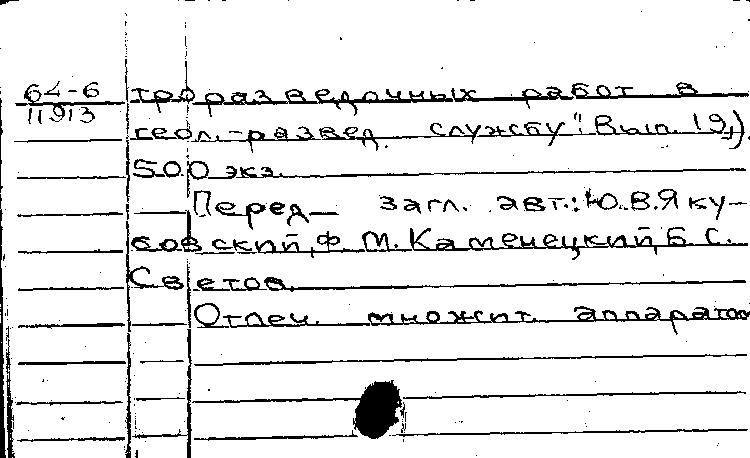 64-6
11913
троразведочных работ в
геол.-развед. службу". Вып. 19).
500 экз.
Перед загл. авт.: Ю.В.Яку-
бовский, Ф.М.Каменецкий, Б.С.
Светов.
Отпеч. множит. аппаратом